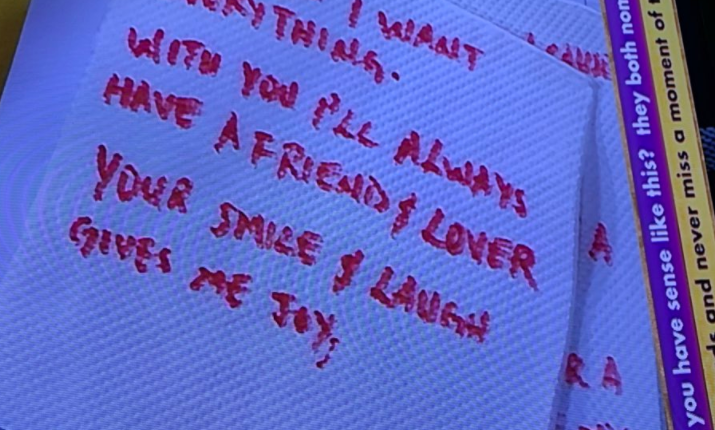 I WANT
EVERYTHING.
WITH YOU I'LL ALWAYS
HAVE A FRIEND & LOVER
YOUR SMILE & LAUGH
GIVES ME JOY,
A
R A
you have sense like this? they both non
ds and never miss a moment of